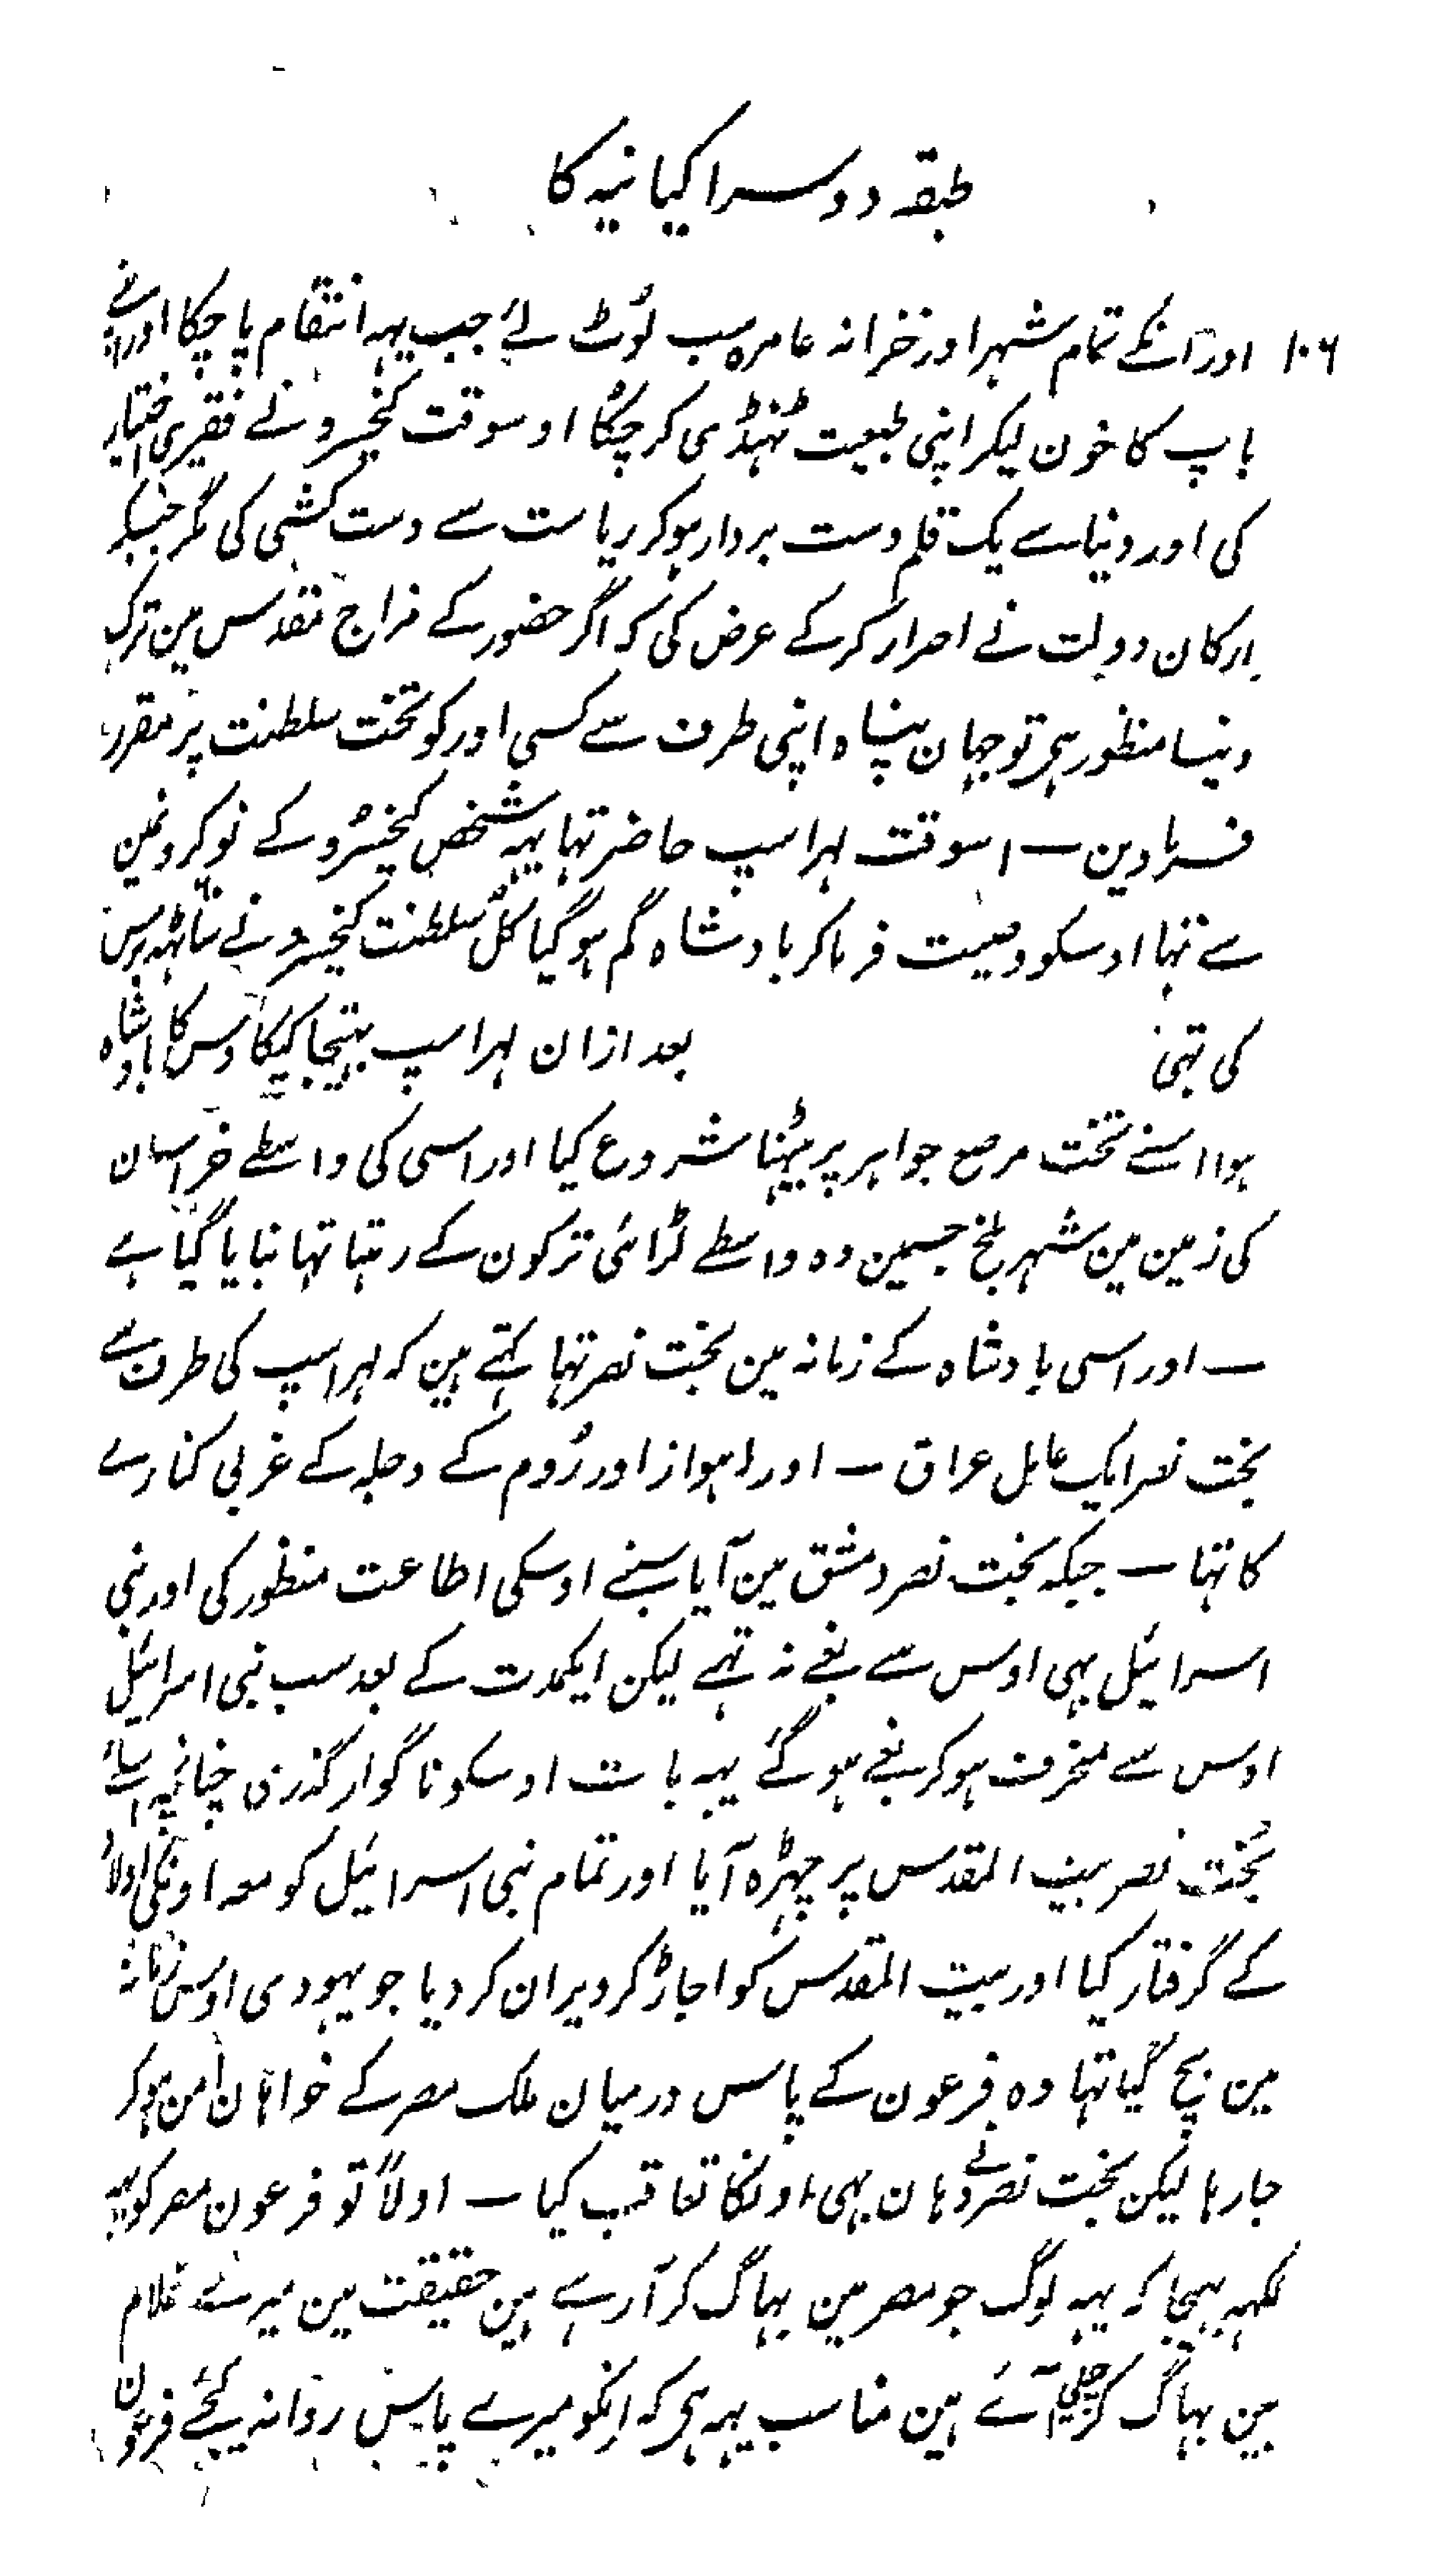 طبقہ دوسرا کیانیہ کا
۱۰۶ اور انکے تمام شہر اور خزانہ عامرہ سب لُوٹ لئے جب یہہ انتقام پا چکا اور اپنے
باپ کا خون لیکر اپنی طبیعت ٹہنڈی کر چکا اوسوقت کیخسرو نے فقیری اختیار
کی اور دنیا سے یک قلم دست بردار ہو کر ریاست سے دست کشی کی مگر جبکہ
ارکان دولت نے اصرار کر کے عرض کی کہ اگر حضور کے مزاج مقدس مین ترک
دنیا منظور ہی تو جہان پناہ اپنی طرف سے کسی اور کو تخت سلطنت پر مقرر
فرما دین ــ اسوقت لہراسپ حاضر تہا یہہ شخص کیخسرو کے نوکرونمین
سے تہا اوسکو وصیت فرما کر بادشاہ گم ہو گیا کل سلطنت کیخسرو نے ساٹہہ برس
کی تہی بعد ازان لہراسپ بہتیجا کیکاوس کا بادشاہ
ہوا اسنے تخت مرصع جواہر پر بیٹہنا شروع کیا اور اسی کی واسطے خراسان
کی زمین مین شہر بلخ جسمین وہ واسطے لڑائی ترکون کے رہتا تہا بنایا گیا ہے
ــ اور اسی بادشاہ کے زمانہ مین بخت نصر تہا کہتے ہین کہ لہراسپ کی طرف سے
بخت نصر ایک عامل عراق ــ اور اہواز اور رُوم کے دجلہ کے غربی کنارے
کا تہا ــ جبکہ بخت نصر دمشق مین آیا سبنے اوسکی اطاعت منظور کی اور بنی
اسرائیل بہی اوس سے بغے نہ تہے لیکن ایکمدت کے بعد سب بنی اسرائیل
اوس سے منحرف ہو کر بغے ہو گئے یہہ بات اوسکو ناگوار گذری چنانچہ اسلئے
بخت نصر بیت المقدس پر چہڑہ آیا اور تمام بنی اسرائیل کو معہ اونکی اولاد
کے گرفتار کیا اور بیت المقدس کو اجاڑ کر ویران کر دیا جو یہودی اوس زمانہ
مین بچ گیا تہا وہ فرعون کے پاس درمیان ملک مصر کے خواہان امن ہو کر
جا رہا لیکن بخت نصر نے وہان بہی اونکا تعاقب کیا ــ اولاً تو فرعون مصر کو یہہ
لکہہ بہیجا کہ یہہ لوگ جو مصر مین بہاگ کر آرہے ہین حقیقت مین میرے غلام
ہین بہاگ کر چلے آئے ہین مناسب یہہ ہی کہ انکو میرے پاس روانہ کیجئے فرعون